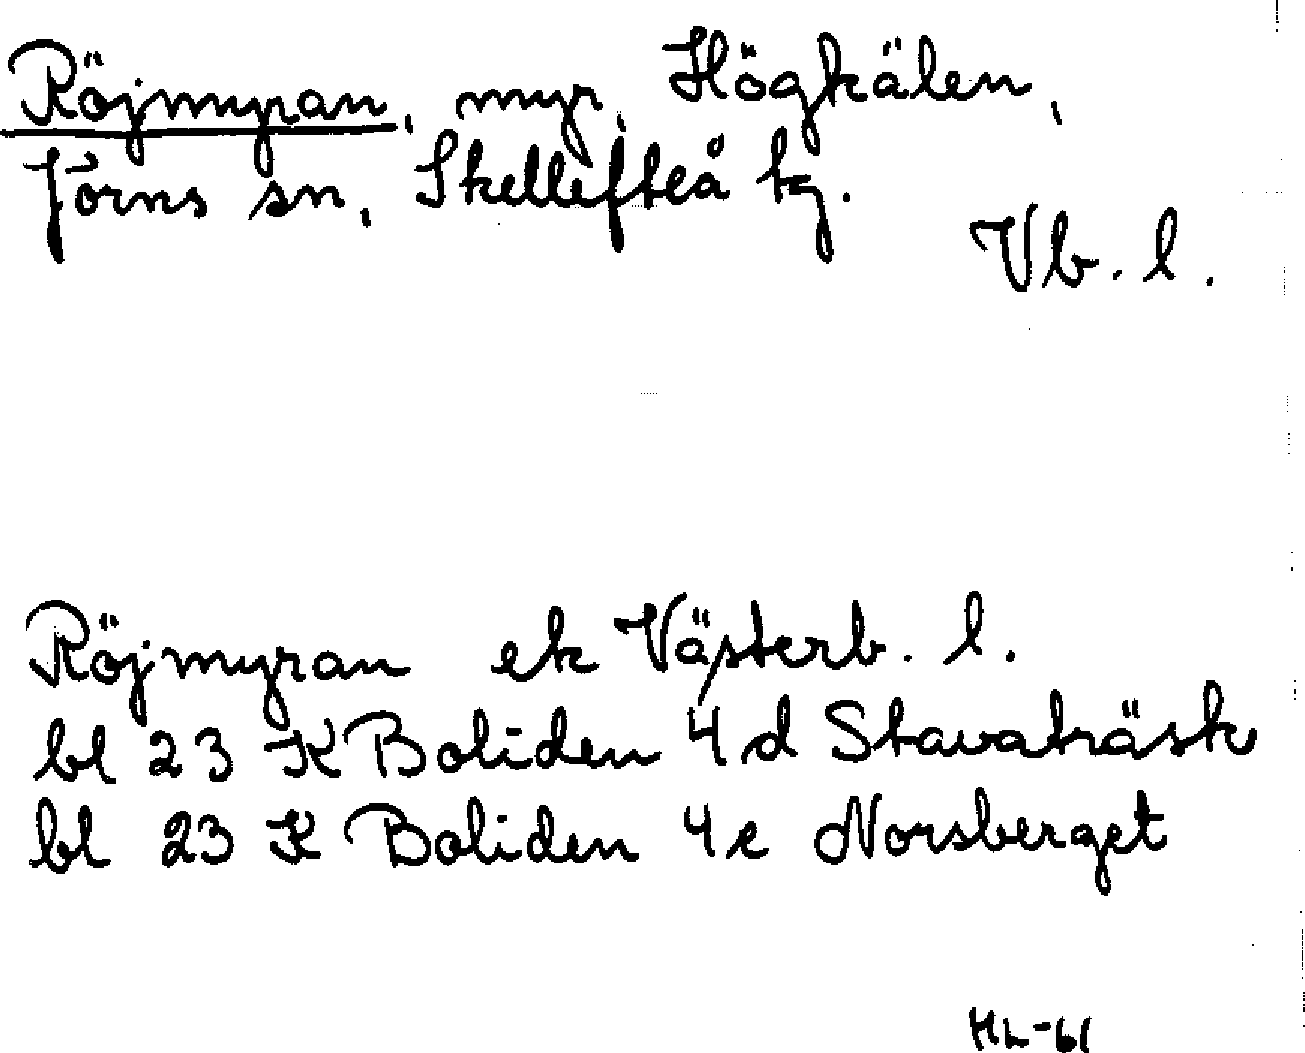 Röjmyran, myr, Högkälen,
Jörns sn, Skellefteå tg.
Vb. l.
Röjmyran ek Västerb. l.
bl 23 K Boliden 4 d Stavaträsk
bl 23 K Boliden 4 e Norsberget
HL-61